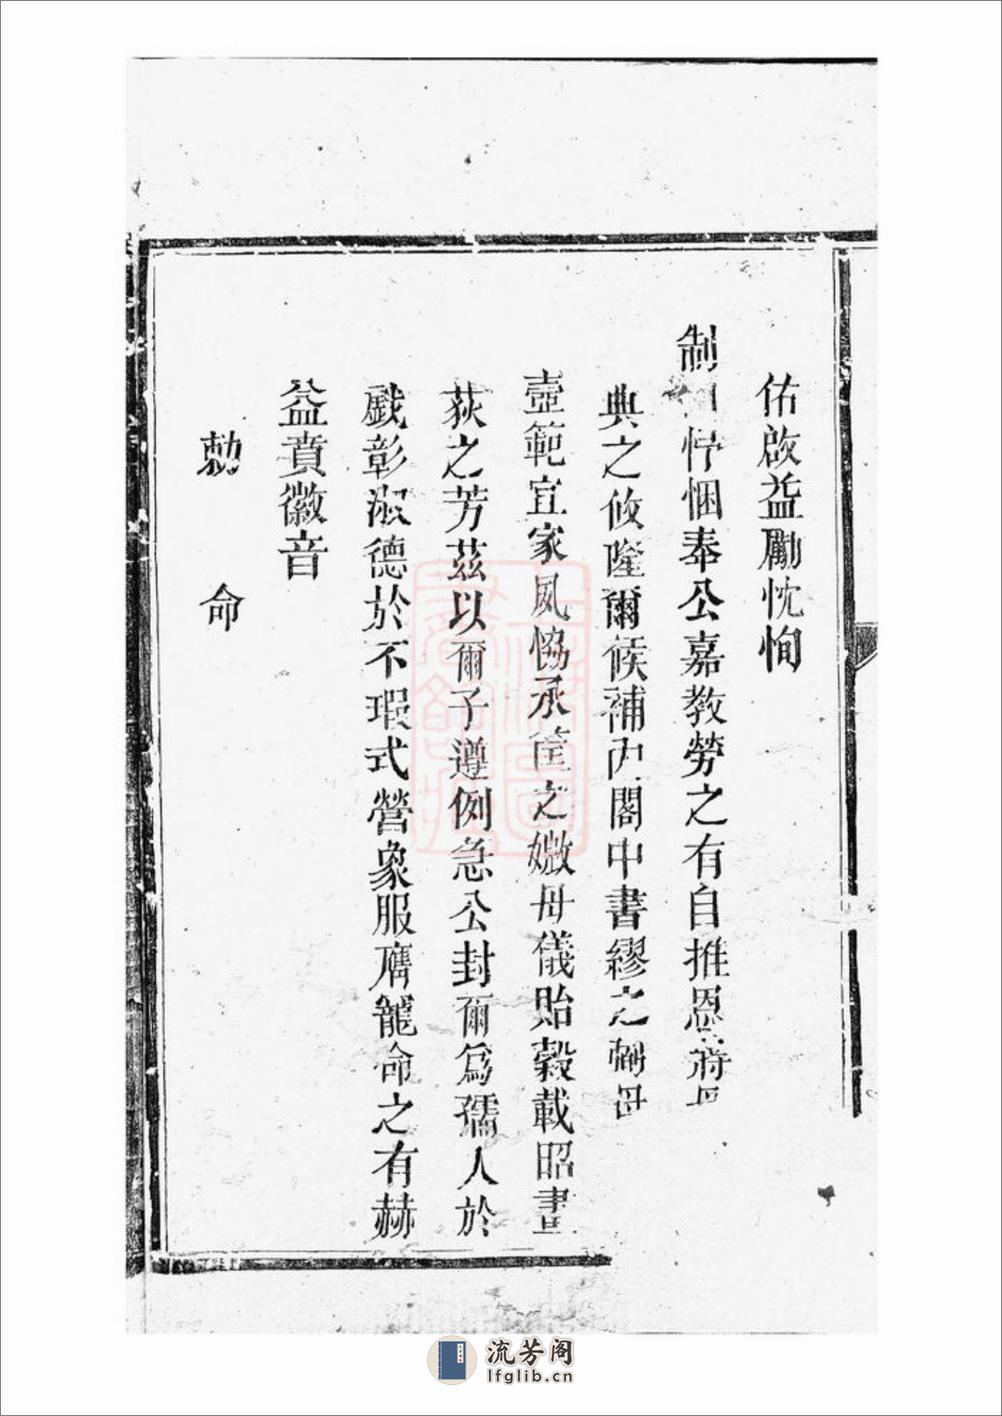 佑啟益勵忱恂
制曰忭悃奉公嘉教勞之有自推恩將母
典之攸隆爾候補內閣中書繆之弼母
壼範宜家夙恊承筐之媺母儀貽穀載昭畫
荻之芳茲以爾子遵例急公封爾爲孺人於
戲彰淑德於不瑕式營象服膺寵命之有赫
益賁徽音
勅命
上海圖書館藏
流芳阁
lfglib.cn